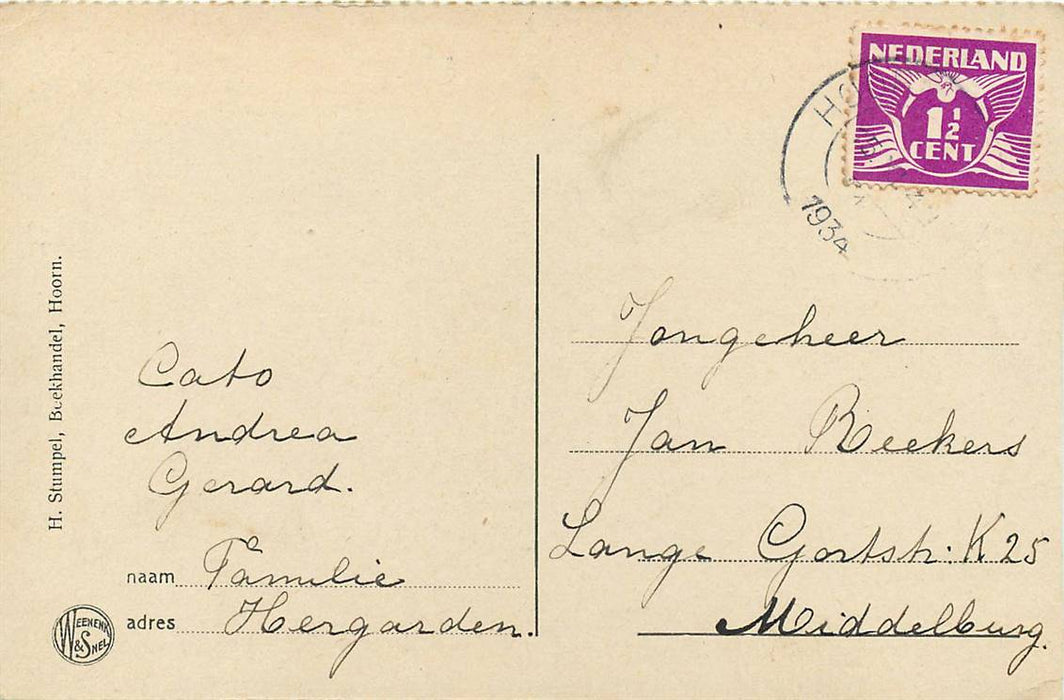 NEDERLAND
1 1/2
CENT
1934
H. Stumpel, Boekhandel, Hoorn.
Cato
Andrea
Gerard.
naam Familie
adres Hergarden.
WEENENK
& SNEL
Jongeheer
Jan Reekers
Lange Gortstr: K 25
Middelburg.